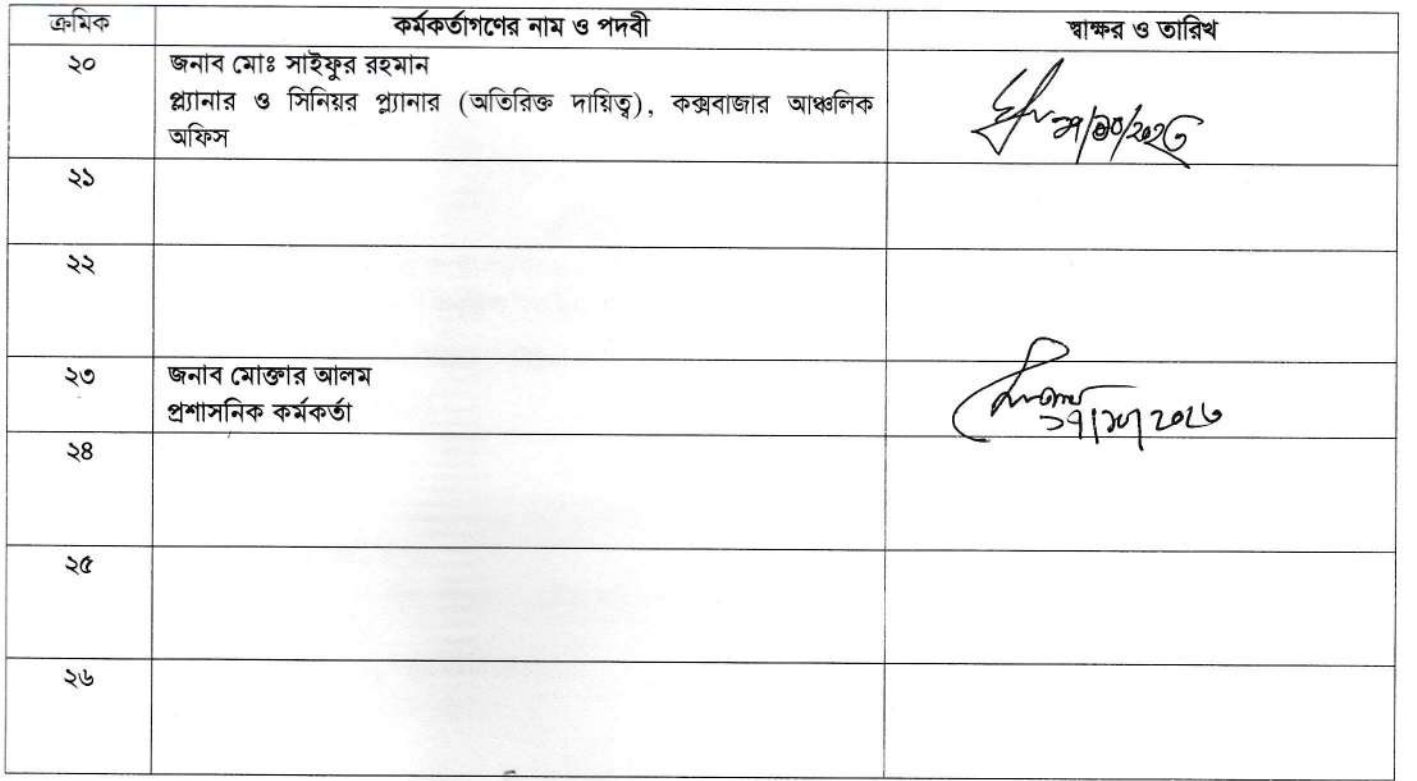 ক্রমিক কর্মকর্তাগণের নাম ও পদবী স্বাক্ষর ও তারিখ
২০ জনাব মোঃ সাইফুর রহমান
প্ল্যানার ও সিনিয়র প্ল্যানার (অতিরিক্ত দায়িত্ব), কক্সবাজার আঞ্চলিক
অফিস
২১
২২
২৩ জনাব মোক্তার আলম
প্রশাসনিক কর্মকর্তা
১৭/১০/২০২৩
২৪
২৫
২৬